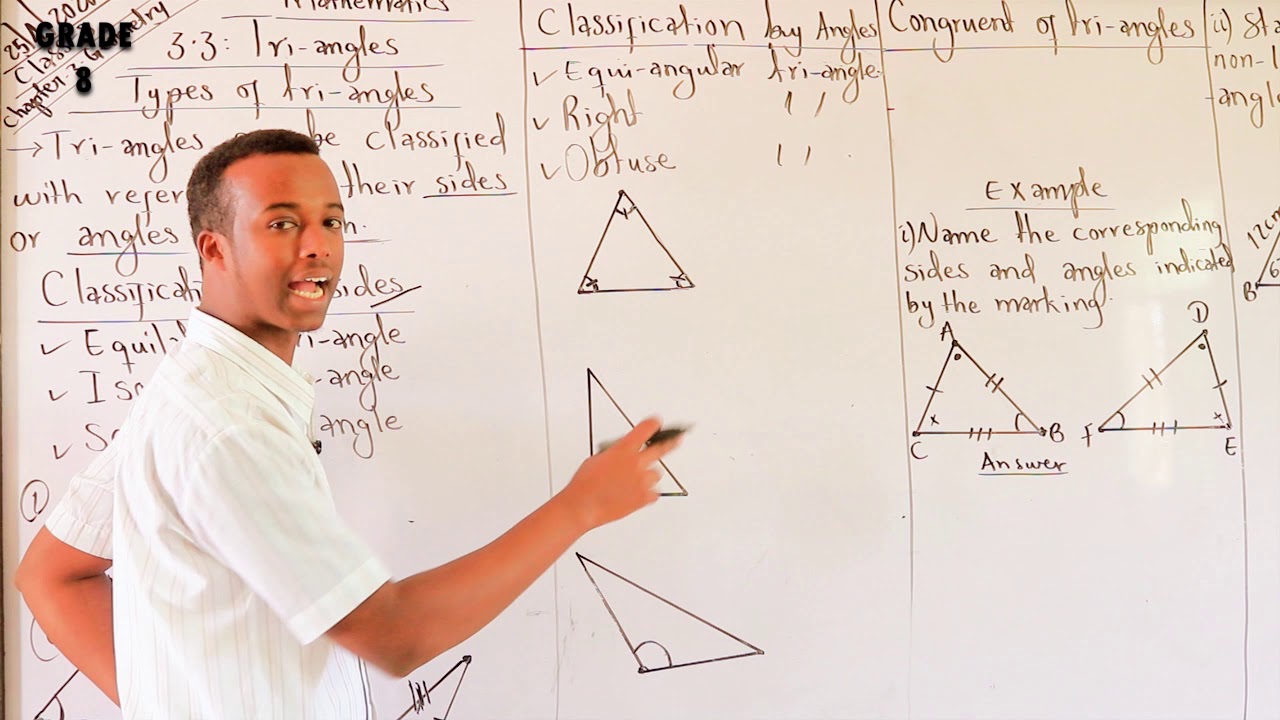 GRADE
8
Mathematics
3.3: Tri-angles
Types of tri-angles
→ Tri-angles be classified
with their sides
or angles
sides
-angle
-angle
angle
①
Classification by Angles
✓ Equi-angular tri-angle.
✓ Right ,,
✓ Obtuse ,, .
Congruent of tri-angles
Example
i) Name the corresponding
sides and angles indicated
by the marking.
A
C
B
x
D
F
E
x
Answer
ii)
non-
angle
12cm
B